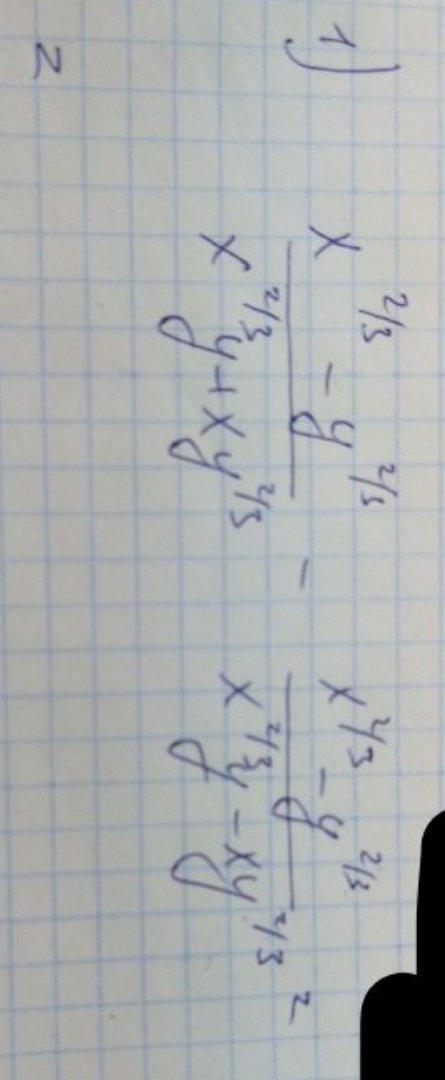 1) (x^{2/3} - y^{2/3})/(x^{2/3}y + xy^{2/3}) - (x^{2/3} - y^{2/3})/(x^{2/3}y - xy^{2/3}) =
=